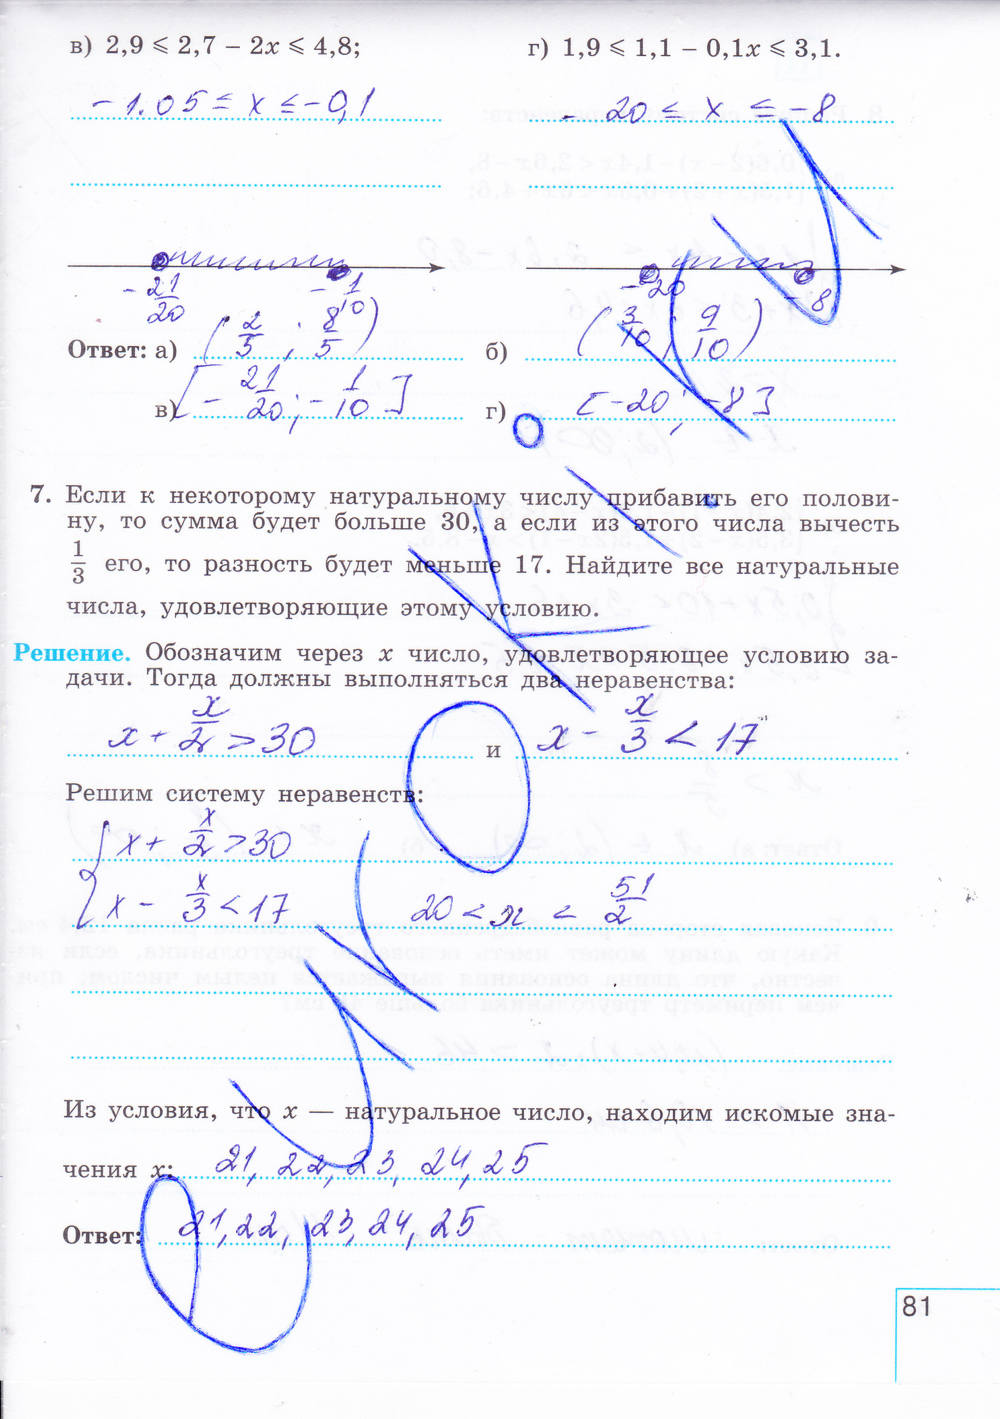 в) 2,9 ⩽ 2,7 − 2x ⩽ 4,8;
г) 1,9 ⩽ 1,1 − 0,1x ⩽ 3,1.
− 1.05 ≤ x ≤ −0,1
− 20 ≤ x ≤ −8
−21/20 −1/10
−20 −8
Ответ: а) (2/5 ; 8/5)
б) (3/10 ; 9/10)
в) [−21/20; −1/10]
г) [−20; −8]
7. Если к некоторому натуральному числу прибавить его полови-
ну, то сумма будет больше 30, а если из этого числа вычесть
1/3 его, то разность будет меньше 17. Найдите все натуральные
числа, удовлетворяющие этому условию.
Решение. Обозначим через x число, удовлетворяющее условию за-
дачи. Тогда должны выполняться два неравенства:
x + x/2 > 30 и x − x/3 < 17
Решим систему неравенств:
{ x + x/2 > 30
x − x/3 < 17 20 < x < 51/2
Из условия, что x — натуральное число, находим искомые зна-
чения x: 21, 22, 23, 24, 25
Ответ: 21, 22, 23, 24, 25
81